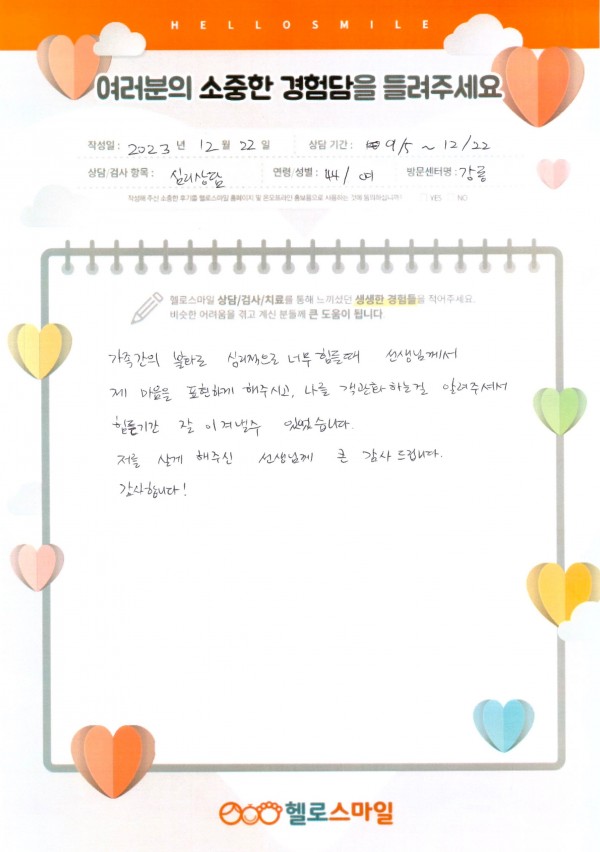 HELLOSMILE
여러분의 소중한 경험담을 들려주세요
작성일 : 2023년 12월 22일 상담 기간 : 9/5 ~ 12/22
상담/검사 항목 : 심리상담 연령/성별 : 44/여 방문센터명 : 강릉
작성해 주신 소중한 후기를 헬로스마일 홈페이지 및 온오프라인 홍보용으로 사용하는 것에 동의하십니까? YES NO
헬로스마일 상담/검사/치료를 통해 느끼셨던 생생한 경험들을 적어주세요.
비슷한 어려움을 겪고 계신 분들께 큰 도움이 됩니다
가족간의 불화로 심리적으로 너무 힘들때 선생님께서
제 마음을 표현하게 해주시고, 나를 객관화하는걸 알려주셔서
힘든기간 잘 이겨낼수 있었습니다.
저를 살게 해주신 선생님께 큰 감사드립니다.
감사합니다!
헬로스마일